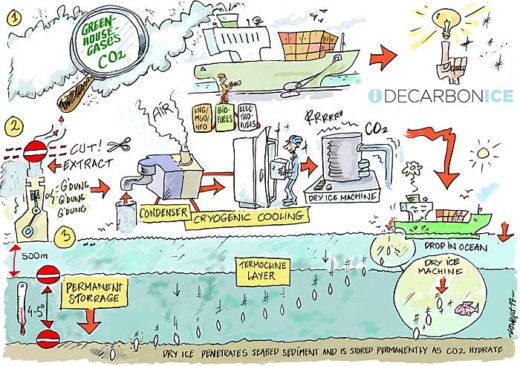 1
GREEN-
HOUSE-
GASES
CO2
DECARBONICE
LNG/
MGO/
HFO
BIO-
FUELS
ELEC
TRO-
FUELS
2
CUT!
EXTRACT
G'DUNG
G'DUNG
G'DUNG
AIR
CONDENSER
CRYOGENIC COOLING
RRRRRR
CO2
DRY ICE MACHINE
3
500m
4-5°
PERMANENT
STORRAGE
TERMOCLINE
LAYER
DROP IN OCEAN
DRY ICE
MACHINE
DRY ICE PENETRATES SEABED SEDIMENT AND IS STORED PERMANENTLY AS CO2 HYDRATE